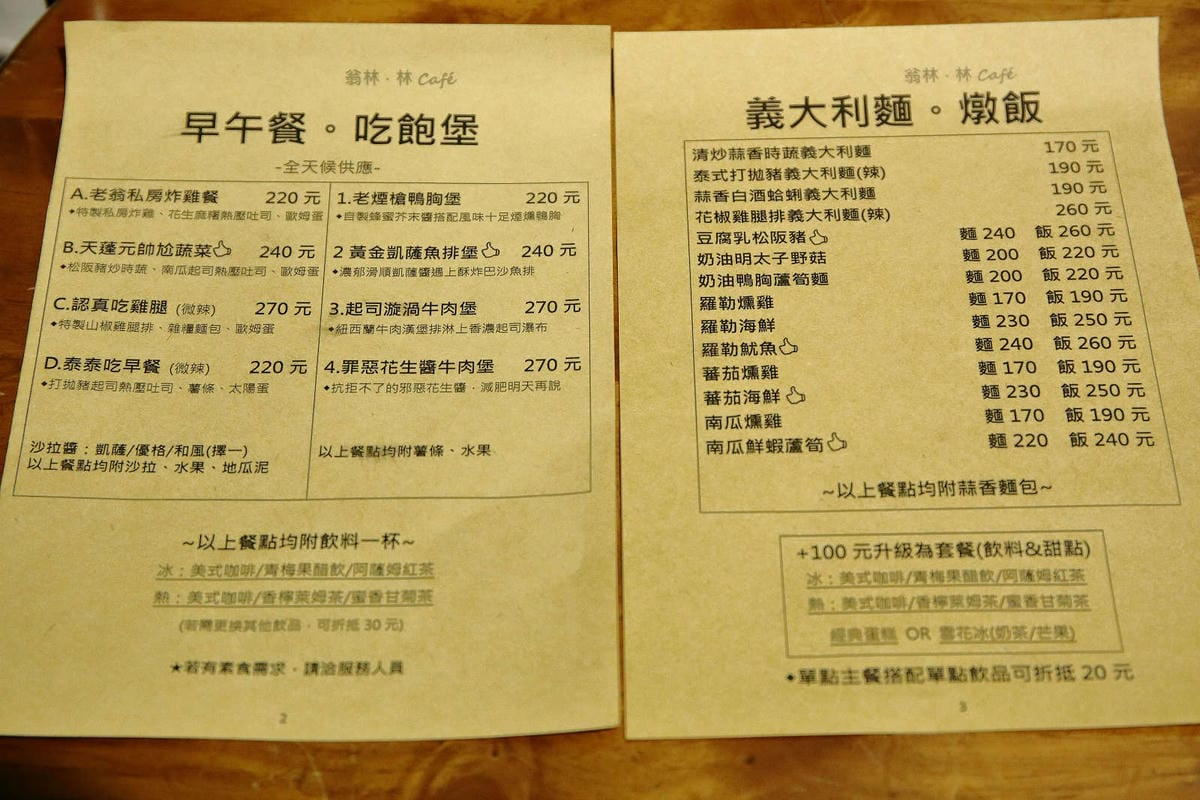 翁林.林 Café
早午餐。吃飽堡
-全天候供應-
A.老翁私房炸雞餐 220 元
◆特製私房炸雞、花生麻糬熱壓吐司、歐姆蛋
B.天蓬元帥尬蔬菜 240 元
◆松阪豬炒時蔬、南瓜起司熱壓吐司、歐姆蛋
C.認真吃雞腿 (微辣) 270 元
◆特製山椒雞腿排、雜糧麵包、歐姆蛋
D.泰泰吃早餐 (微辣) 220 元
◆打拋豬起司熱壓吐司、薯條、太陽蛋
沙拉醬：凱薩/優格/和風(擇一)
以上餐點均附沙拉、水果、地瓜泥
1.老煙槍鴨胸堡 220 元
◆自製蜂蜜芥末醬搭配風味十足煙燻鴨胸
2 黃金凱薩魚排堡 240 元
◆濃郁滑順凱薩醬遇上酥炸巴沙魚排
3.起司漩渦牛肉堡 270 元
◆紐西蘭牛肉漢堡排淋上香濃起司瀑布
4.罪惡花生醬牛肉堡 270 元
◆抗拒不了的邪惡花生醬，減肥明天再說
以上餐點均附薯條、水果
~以上餐點均附飲料一杯~
冰：美式咖啡/青梅果醋飲/阿薩姆紅茶
熱：美式咖啡/香檸萊姆茶/蜜香甘菊茶
(若需更換其他飲品，可折抵 30 元)
★若有素食需求，請洽服務人員
2
翁林.林 Café
義大利麵。燉飯
清炒蒜香時蔬義大利麵 170 元
泰式打拋豬義大利麵(辣) 190 元
蒜香白酒蛤蜊義大利麵 190 元
花椒雞腿排義大利麵(辣) 260 元
豆腐乳松阪豬 麵 240 飯 260 元
奶油明太子野菇 麵 200 飯 220 元
奶油鴨胸蘆筍麵 麵 200 飯 220 元
羅勒燻雞 麵 170 飯 190 元
羅勒海鮮 麵 230 飯 250 元
羅勒魷魚 麵 240 飯 260 元
蕃茄燻雞 麵 170 飯 190 元
蕃茄海鮮 麵 230 飯 250 元
南瓜燻雞 麵 170 飯 190 元
南瓜鮮蝦蘆筍 麵 220 飯 240 元
~以上餐點均附蒜香麵包~
+100 元升級為套餐(飲料&甜點)
冰：美式咖啡/青梅果醋飲/阿薩姆紅茶
熱：美式咖啡/香檸萊姆茶/蜜香甘菊茶
經典蛋糕 OR 雪花冰(奶茶/芒果)
◆單點主餐搭配單點飲品可折抵 20 元
3